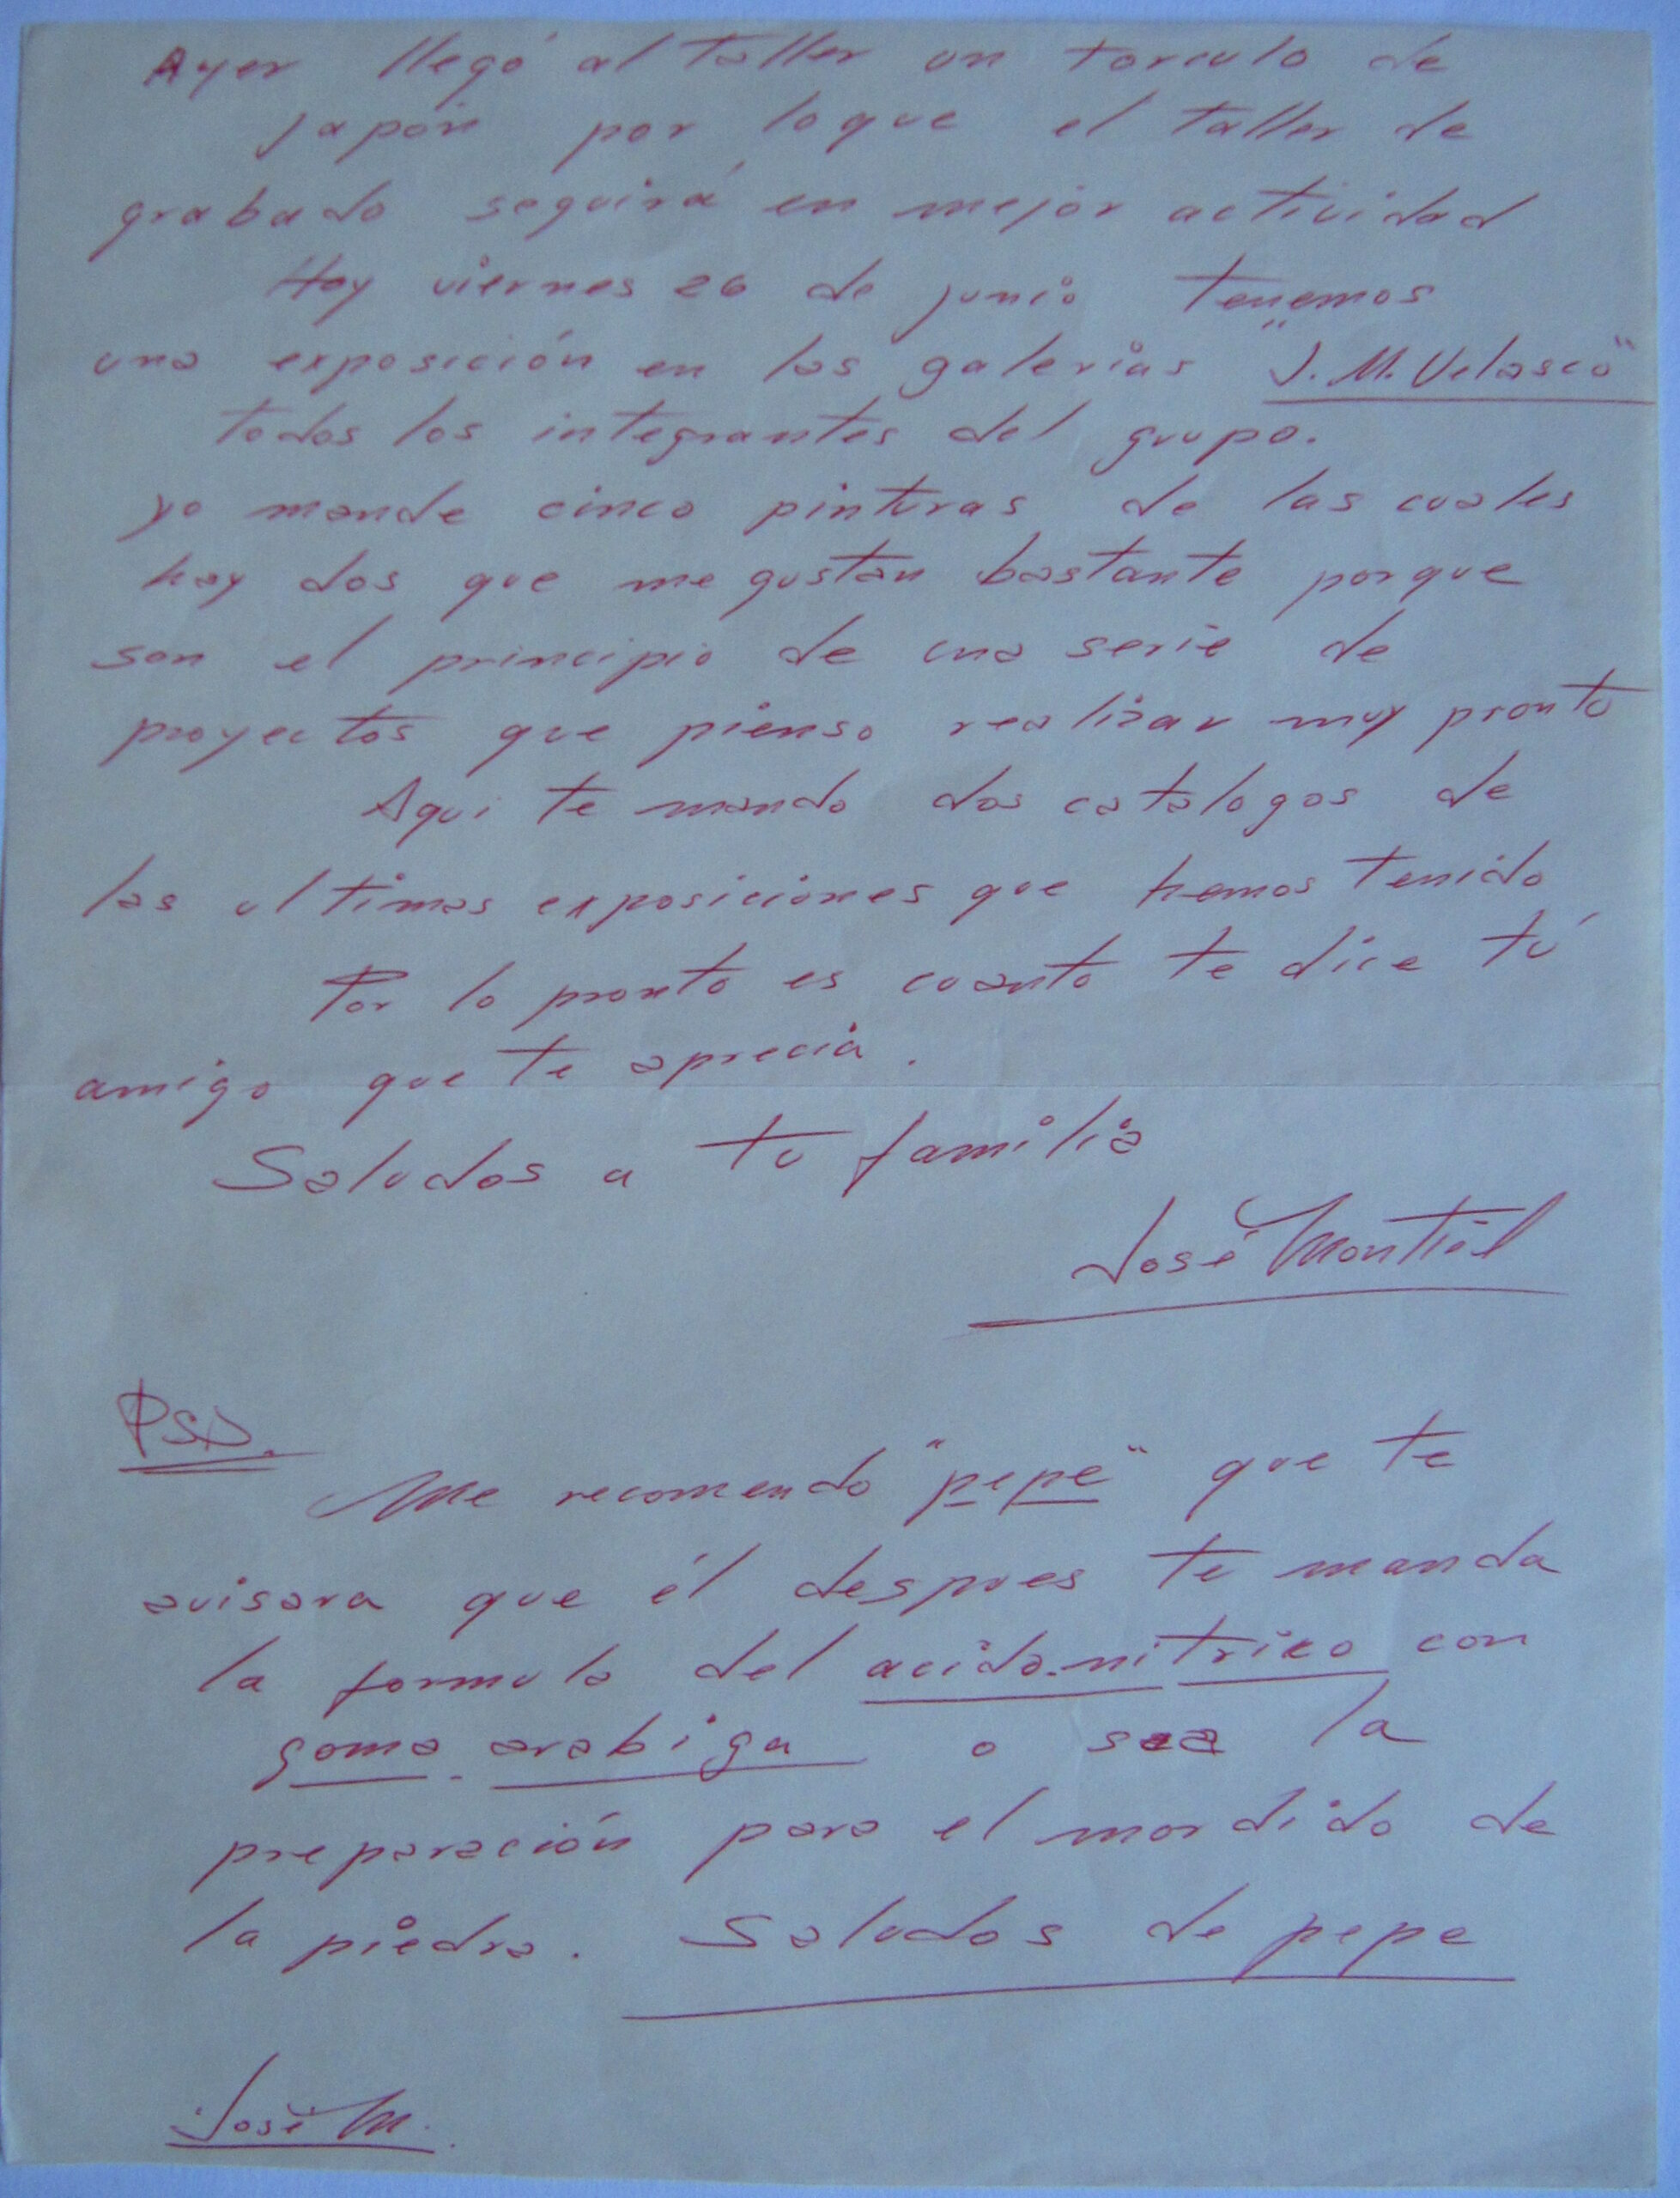 Ayer llegó al taller un torculo de
Japón por loque el taller de
grabado seguirá en mejor actividad
Hoy viernes 26 de junio tenemos
una exposición en las galerias "J. M. Velasco"
todos los integrantes del grupo.
yo mande cinco pinturas de las cuales
hay dos que me gustan bastante porque
son el principio de una serie de
proyectos que pienso realizar muy pronto
Aqui te mando dos catalogos de
las ultimas exposiciones que hemos tenido
Por lo pronto es cuanto te dice tú
amigo que te aprecia.
Saludos a tu familia
José Montiel
PSD.
Me recomendo "pepe" que te
avisara que él despues te manda
la formula del acido-nitrico con
goma-arabiga o sea la
preparación para el mordido de
la piedra. Saludos de pepe
José M.